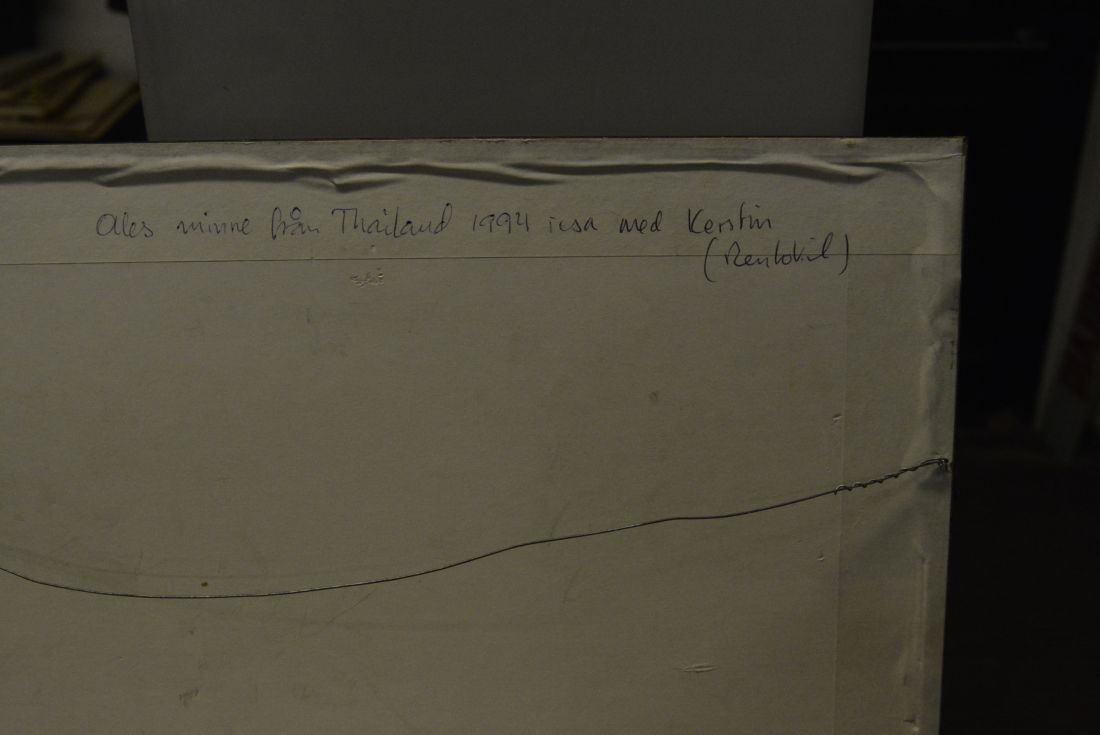 Ales minne från Thailand 1994 resa med Kerstin
(Rentokil)